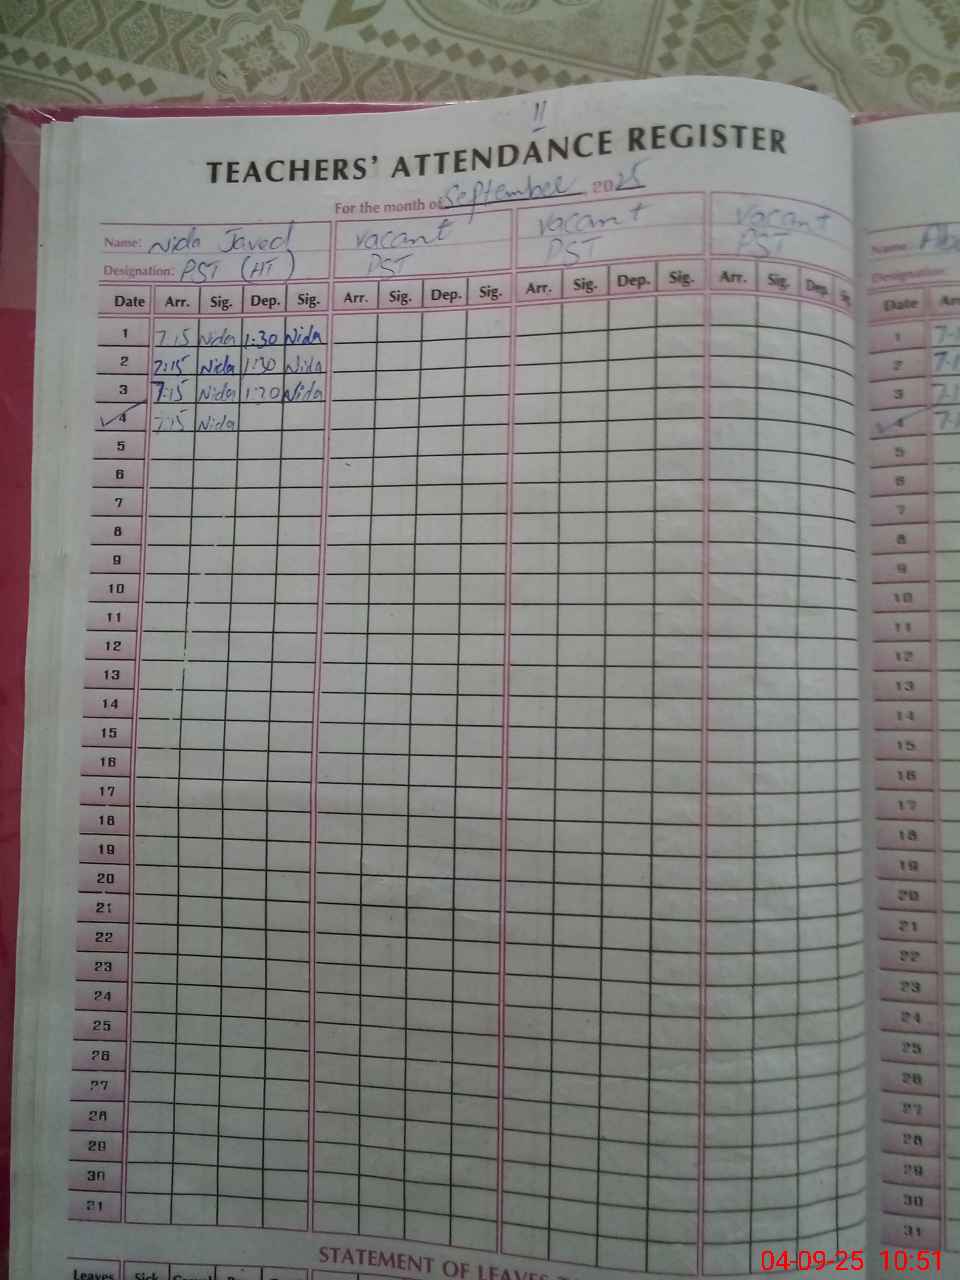 11
TEACHERS' ATTENDANCE REGISTER
For the month of September 2025
Name: Nida Javed vacant vacant vacant Name:
Designation: PST (HT) PST PST PST Designation:
Date Arr. Sig. Dep. Sig. Arr. Sig. Dep. Sig. Arr. Sig. Dep. Sig. Arr. Sig. Dep. Sig. Date
1 7:15 Nida 1:30 Nida 1
2 7:15 Nida 1:30 Nida 2
3 7:15 Nida 1:30 Nida 3
4 7:15 Nida 4
5 5
6 6
7 7
8 8
9 9
10 10
11 11
12 12
13 13
14 14
15 15
16 16
17 17
18 18
19 19
20 20
21 21
22 22
23 23
24 24
25 25
26 26
27 27
28 28
29 29
30 30
31 31
STATEMENT OF LEAVES
Leaves Sick Casual
04-09-25 10:51